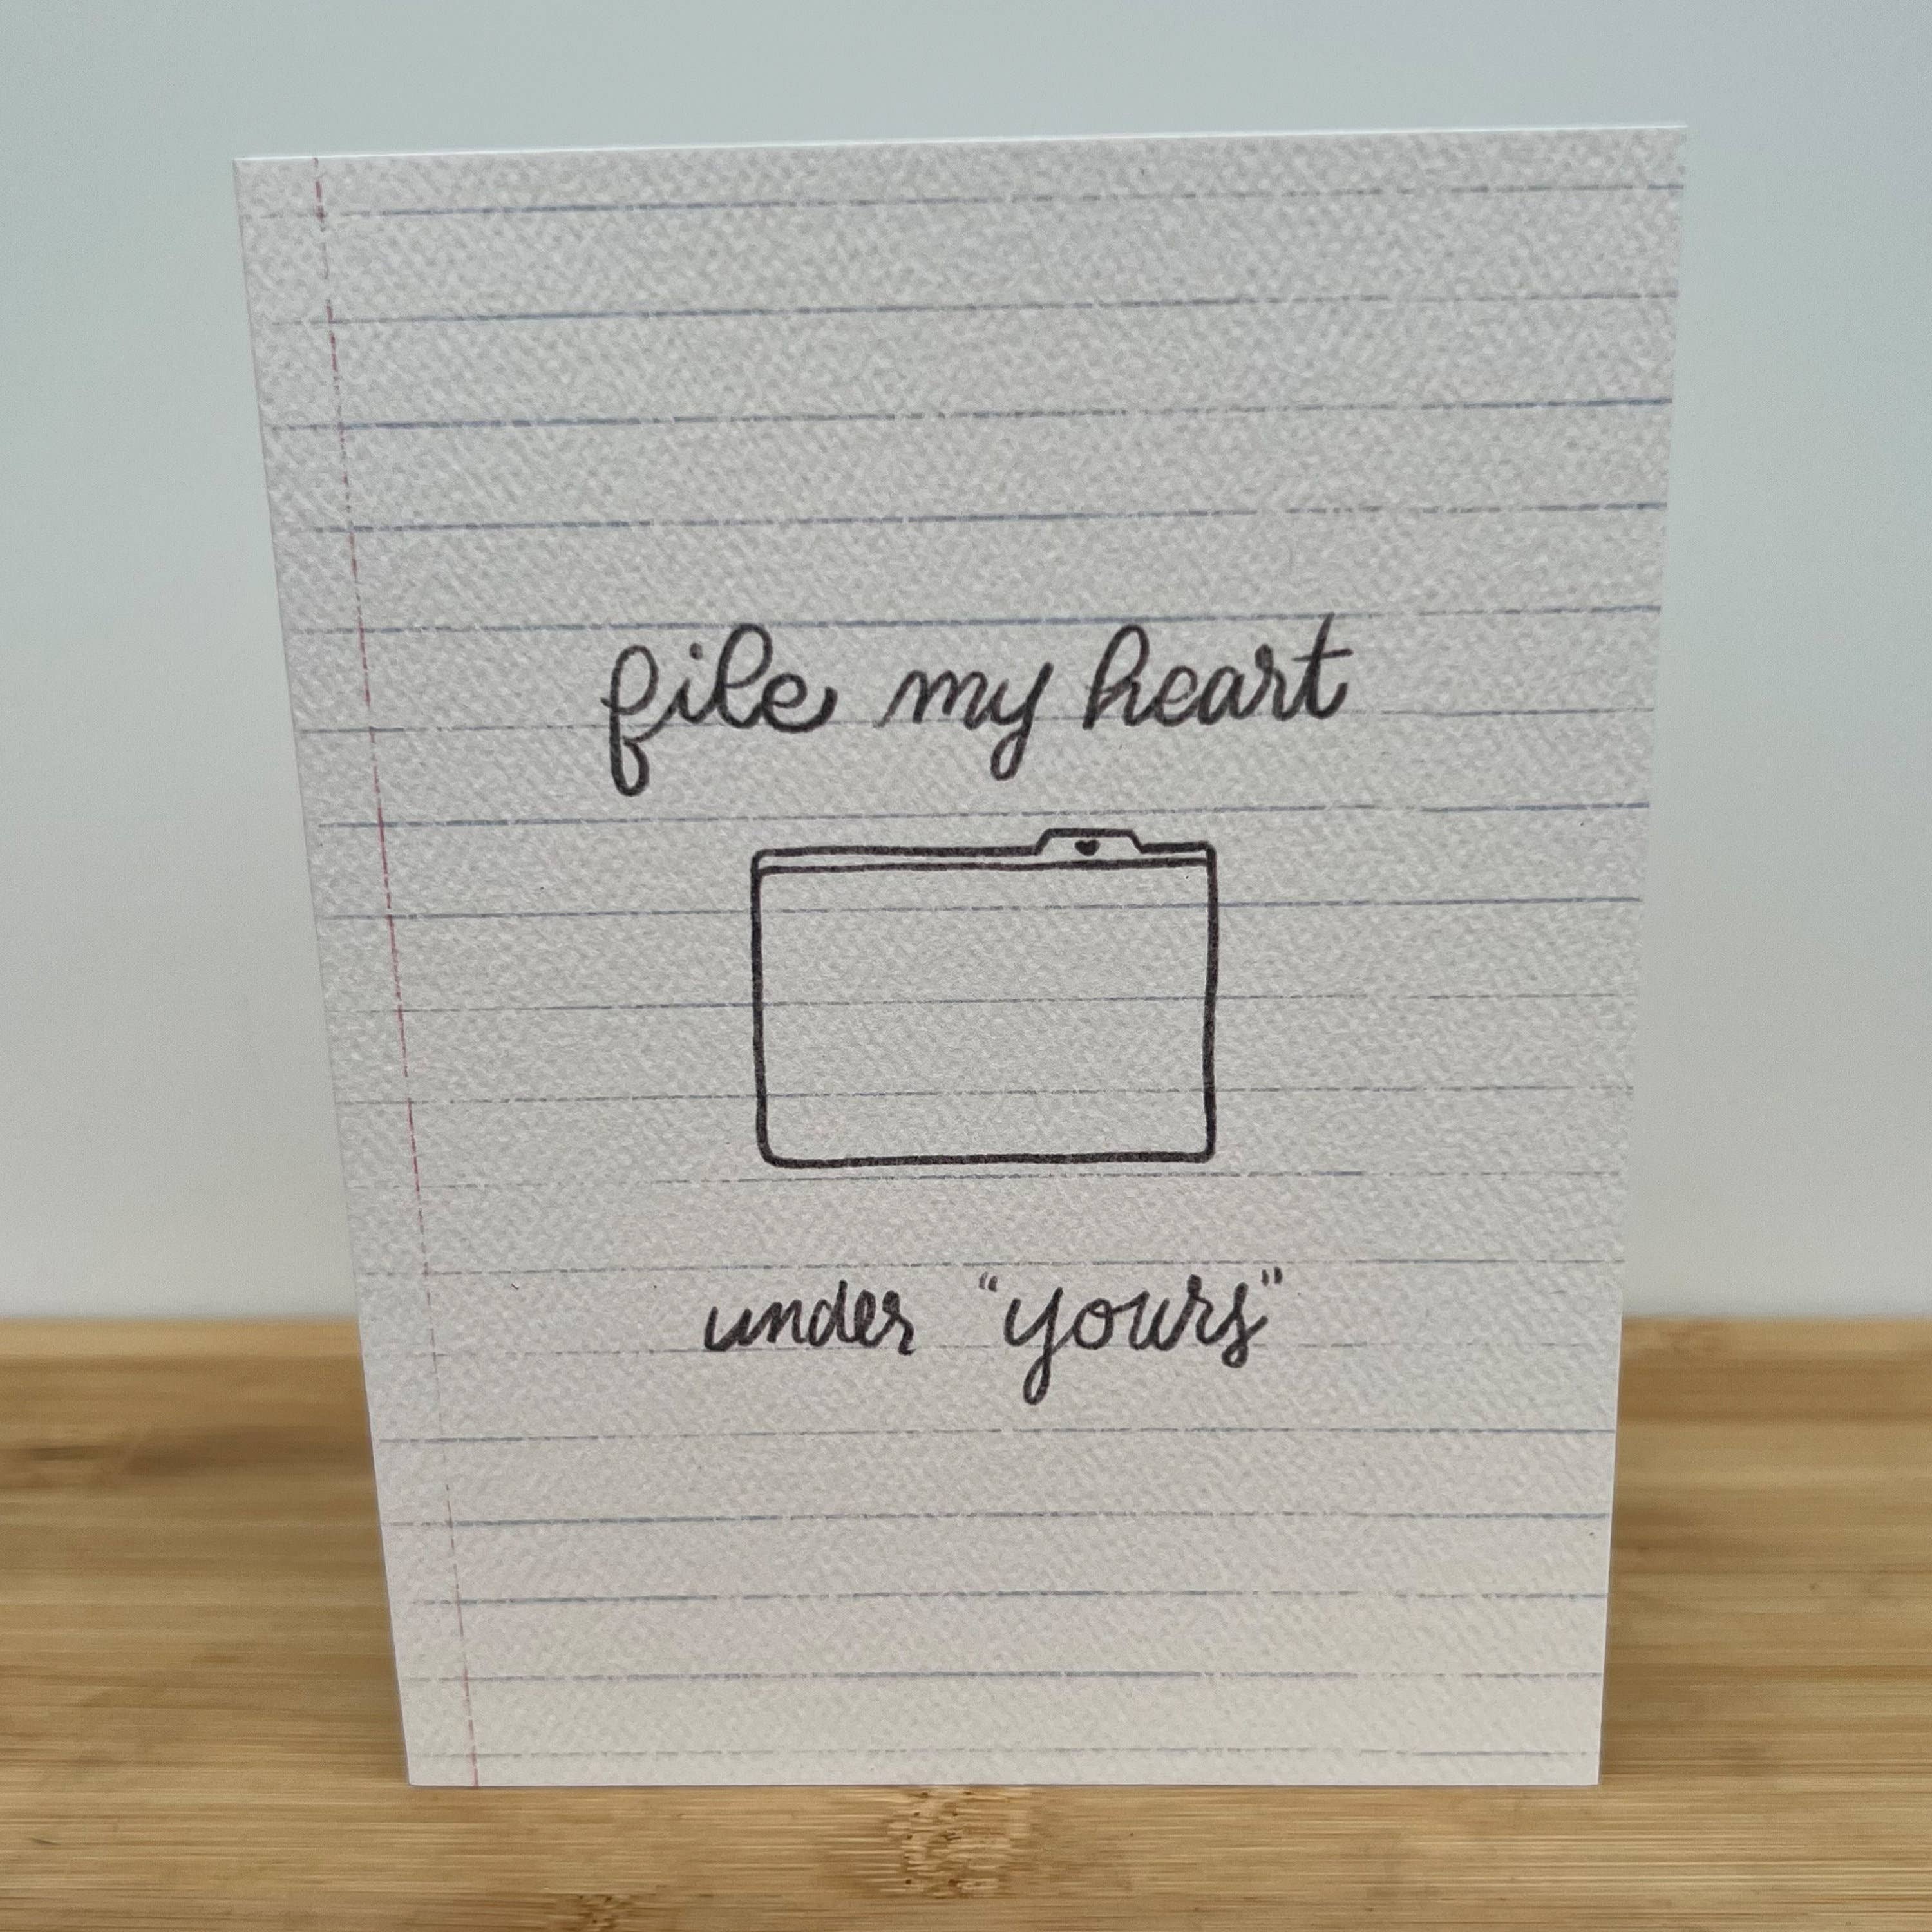 file my heart
under "yours"